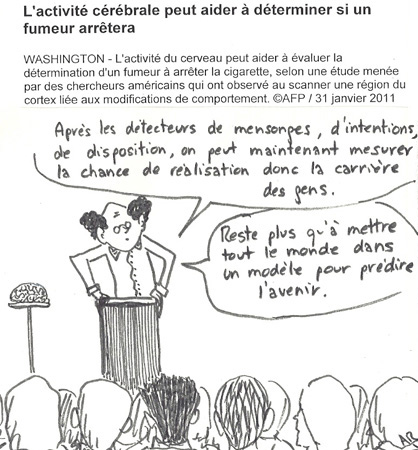 L'activité cérébrale peut aider à déterminer si un
fumeur arrêtera
WASHINGTON - L'activité du cerveau peut aider à évaluer la
détermination d'un fumeur à arrêter la cigarette, selon une étude menée
par des chercheurs américains qui ont observé au scanner une région du
cortex liée aux modifications de comportement. ©AFP / 31 janvier 2011
Après les détecteurs de mensonges, d'intentions,
de disposition, on peut maintenant mesurer
la chance de réalisation donc la carrière
des gens.
Reste plus qu'à mettre
tout le monde dans
un modèle pour prédire
l'avenir.
AB